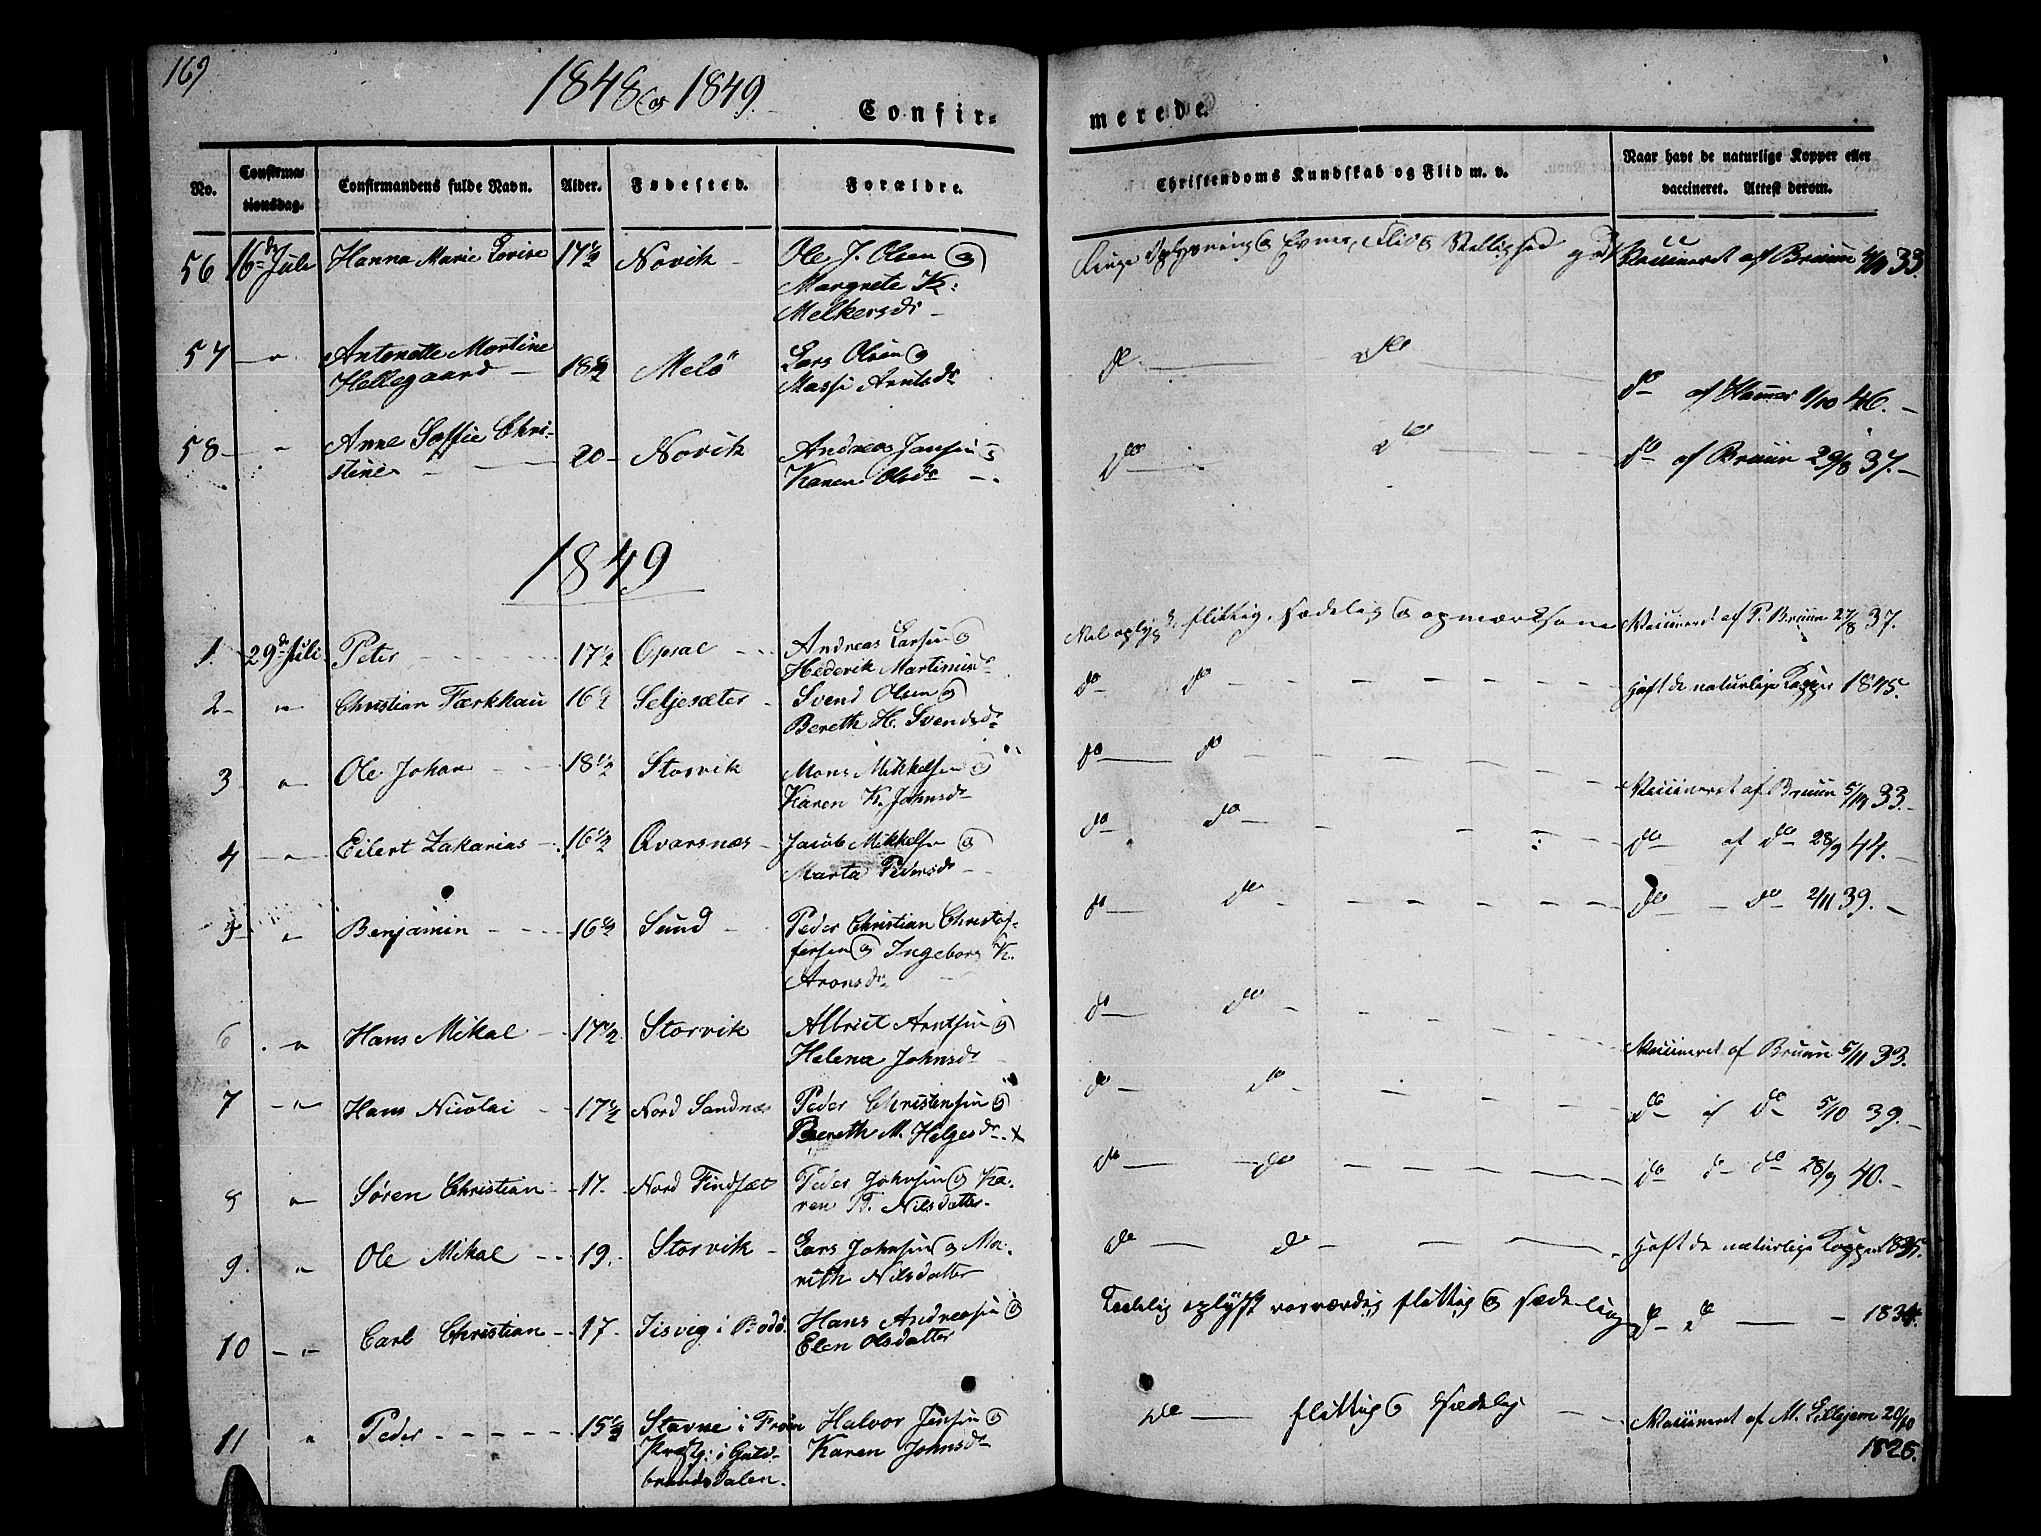 169
1848 og 1849.
Confir=
merede.
No.
Confirma=
tionsdag.
Confirmandens fulde Navn.
Alder.
Fødested.
Forældre.
Christendoms Kundskab og Flid m. v.
Naar havt de naturlige Kopper eller
vaccineret. Attest derom.
56 16de Juli Hanna Marie Lovise 17 1/2 Novik Ole J. Olsen og
Margrete K:
Melkersdr
Oplysning og Evne, Flid & Sædelighed god
Vaccineret af Bruun 33.
57 " Antonette Martine
Hellegaard 18 1/2 Melö Lars Olsen og
Massi Arntsdr
do do
do af 1/10 46.
58 " Anne Soffie Chri-
stine 20 Novik Andreas Jansen og
Karen Olsdr
do do
do af Bruun 29/8 37.
1849
1. 29de Juli Peter 17 1/2 Opsal Andreas Larsen og
Hedevik Martinusdr
Vel oplyst, flittig, sædelig og opmærksom
Vaccineret af P. Bruun 27/8 37.
2 " Christian Færkhau 16 1/2 Seljesæter Svend Olsen og
Bereth H. Svendsdr
do do
Haft de naturlige Kopper 1845.
3 " Ole Johan 18 1/2 Storvik Mons Mikkelsen og
Karen K. Johnsdr
do do
Vaccineret af Bruun 33.
4 " Eilert Zakarias 16 1/2 Qvarsnæs Jacob Mikkelsen og
Marta Pedersdr
do do
do af do 28/9 44.
5 " Benjamin 16 1/2 Sund Peder Christian Christof-
fersen og Ingeborg K.
Aronsdr
do do
do do 2/11 39.
6 " Hans Mikal 17 1/2 Storvik Albrict Arntsen og
Helena Johnsdr
do do
Vaccineret af Bruun 5/11 33.
7 " Hans Nicolai 17 1/2 Nord Sandnæs Peder Christensen og
Bereth M. Helgesdr. x
do do
do af do 5/10 39.
8 " Søren Christian 17. Nord Findsæt Peder Johnsen og Ka-
ren P. Nilsdatter
do do
do do 28/9 40.
9. " Ole Mikal 19. Storvik Lars Johnsen og Ma-
rith Nilsdatter
do do
Haft de naturlige Kopper 1835.
10 " Carl Christian 17. i Bodö. Hans Andreasen og
Elen Olsdatter
oplyst flittig og sædelig
do do 1834.
11 " Peder 15 1/2 Stavne i Frøn
Præstg: i Guld-
brandsdalen. Halvor Jensen og
Karen Johnsdr
do flittig og sædelig
Vaccineret af M. 20/10